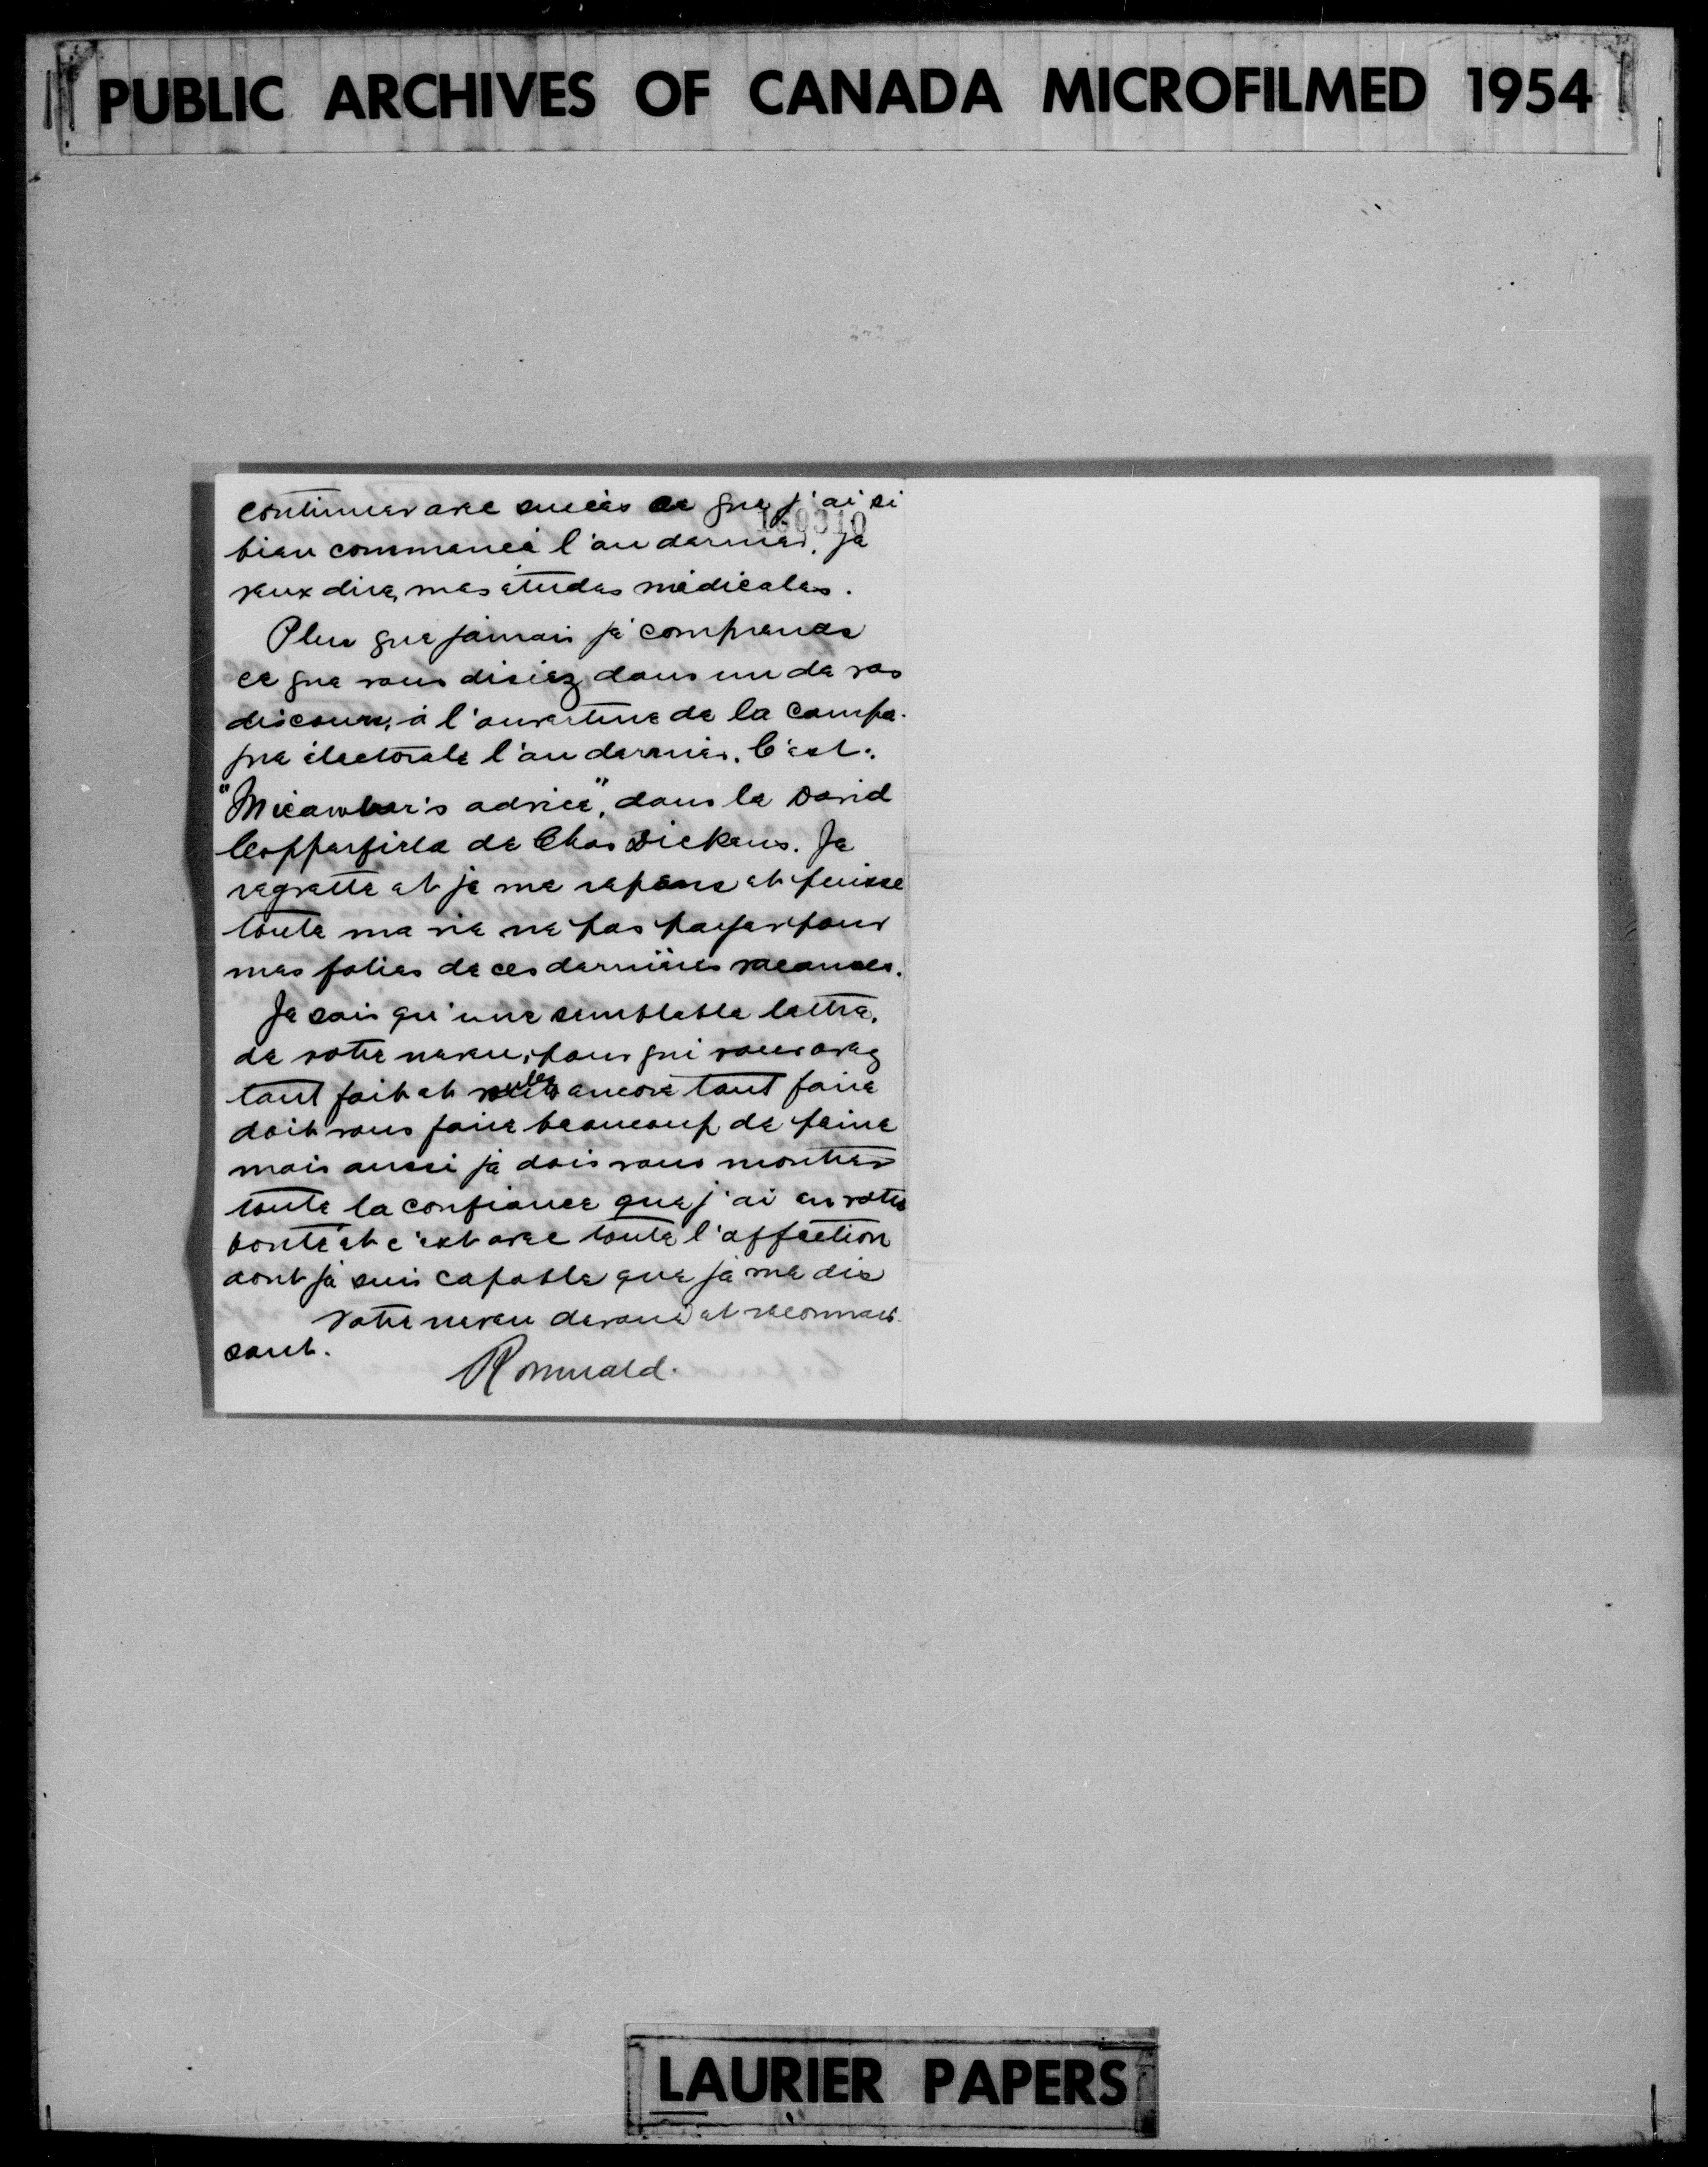 PUBLIC ARCHIVES OF CANADA MICROFILMED 1954
continuer avec succès ce que j'ai si
bien commencé l'an dernier, je
veux dire, mes études médicales.
Plus que jamais je comprends
ce que vous disiez dans un de vos
discours, à l'ouverture de la campa-
gne électorale l'an dernier. C'est:
"Micawber's advice", dans le David
Copperfield de Chas Dickens. Je
regrette et je me repens et puisse
toute ma vie ne pas payer pour
mes folies de ces dernières vacances.
Je sais qu'une semblable lettre,
de votre neveu, pour qui vous avez
tant fait et voulez encore tant faire
doit vous faire beaucoup de peine
mais aussi je dois vous montrer
toute la confiance que j'ai en votre
bonté et c'est avec toute l'affection
dont je suis capable que je me dis
Votre neveu dévoué et reconnais-
sant.
Romuald.
LAURIER PAPERS